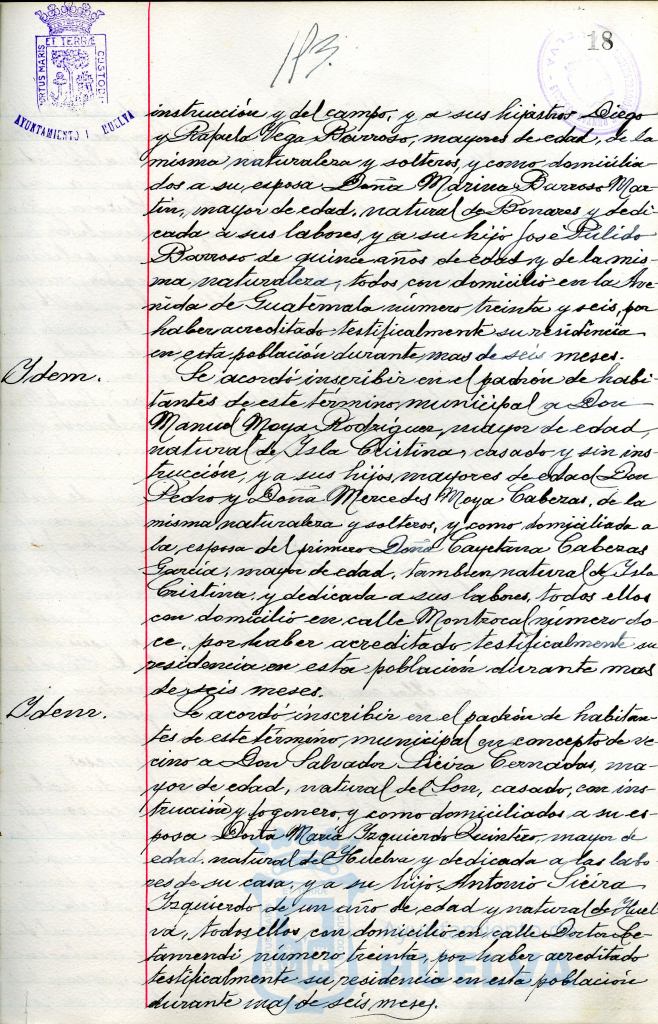 PORTUS MARIS ET TERRÆ CUSTODIA
AYUNTAMIENTO HUELVA
113.
18
instrucción y del campo, y a sus hijastros Diego
y Rafaela Vega Barroso, mayores de edad, de la
misma naturaleza y solteros, y como domicilia-
dos a su esposa Doña Marina Barroso Mar-
tin, mayor de edad, natural de Bonares y dedi-
cada a sus labores, y a su hijo Jose Pulido
Barroso de quince años de edad y de la mis-
ma naturaleza, todos con domicilio en la Ave-
nida de Guatemala número treinta y seis, por
haber acreditado testificalmente su residencia
en esta población durante mas de seis meses.
Idem.
Se acordó inscribir en el padrón de habi-
tantes de este término municipal a Don
Manuel Moya Rodriguez, mayor de edad,
natural de Isla Cristina, casado y sin ins-
trucción, y a sus hijos mayores de edad Don
Pedro y Doña Mercedes Moya Cabezas, de la
misma naturaleza y solteros, y como domiciliada a
la esposa del primero Doña Cayetana Cabezas
Garcia, mayor de edad, tambien natural de Isla
Cristina y dedicada a sus labores, todos ellos
con domicilio en calle Montrocal número do-
ce, por haber acreditado testificalmente su
residencia en esta población durante mas
de seis meses.
Idem.
Se acordó inscribir en el padrón de habitan-
tes de este término municipal en concepto de ve-
cino a Don Salvador Sieira Cernadas, ma-
yor de edad, natural de Son, casado, con ins-
trucción y fogonero, y como domiciliados a su es-
posa Doña Maria Izquierdo Quintero, mayor de
edad, natural de Huelva y dedicada a las labo-
res de su casa, y a su hijo Antonio Sieira
Izquierdo de un año de edad y natural de Huel-
va, todos ellos con domicilio en calle Doctor
número treinta, por haber acreditado
testificalmente su residencia en esta población
durante mas de seis meses.
HUELVA